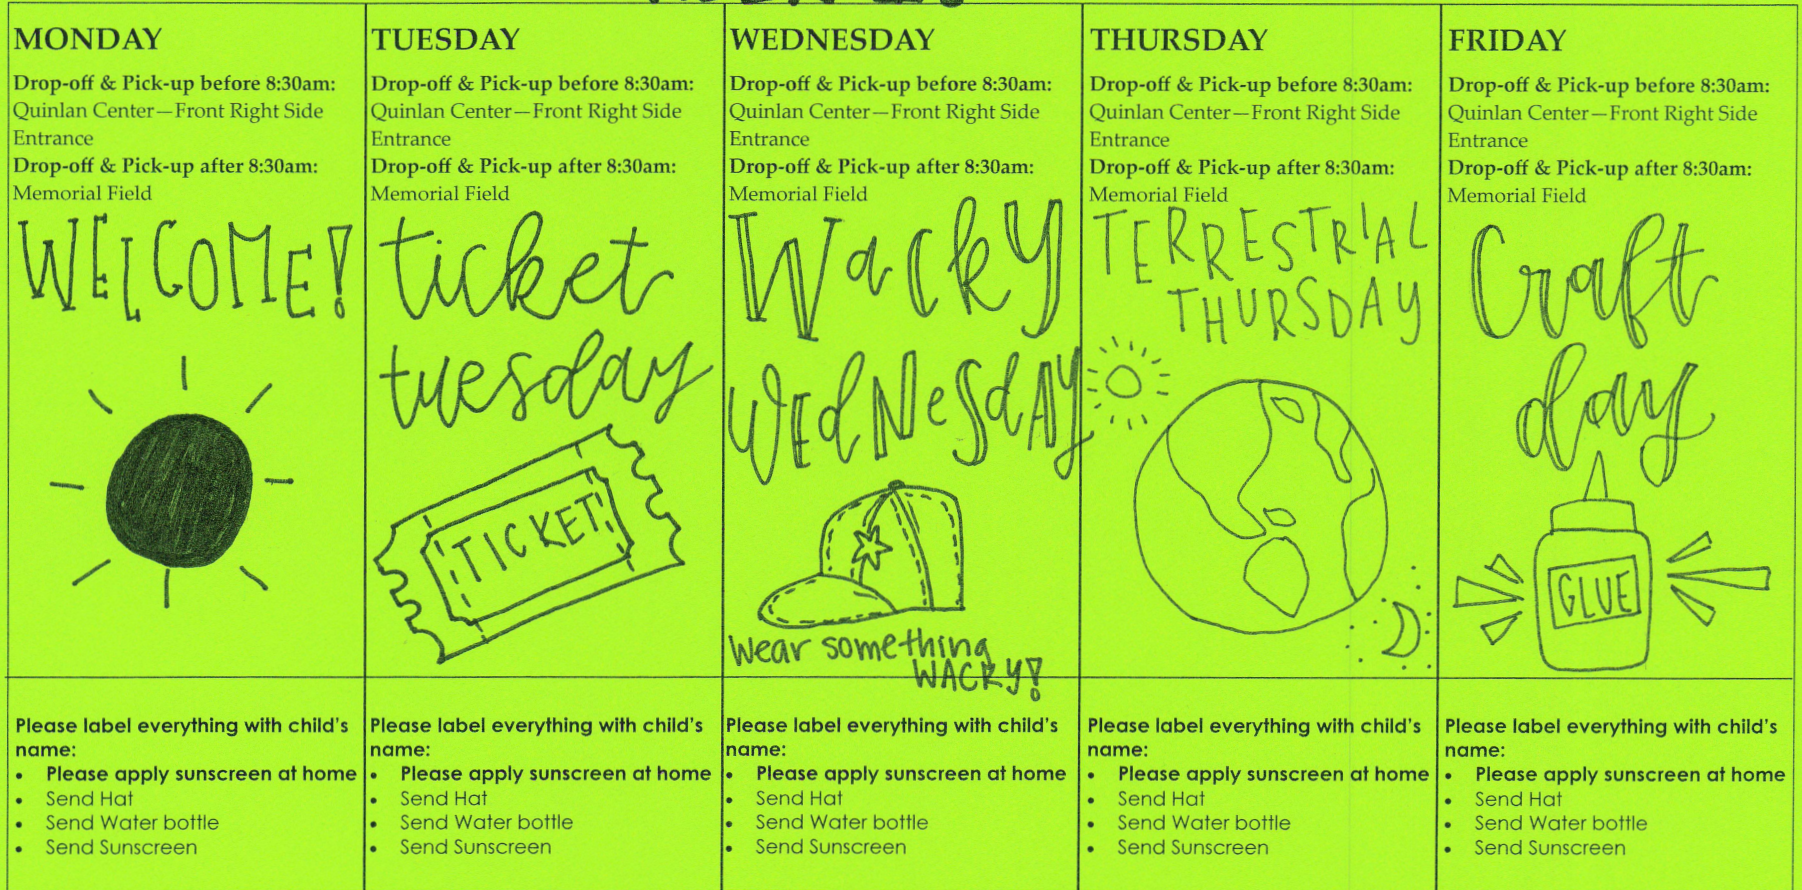 MONDAY
Drop-off & Pick-up before 8:30am:
Quinlan Center—Front Right Side
Entrance
Drop-off & Pick-up after 8:30am:
Memorial Field
WELCOME!
Please label everything with child's
name:
• Please apply sunscreen at home
• Send Hat
• Send Water bottle
• Send Sunscreen
TUESDAY
Drop-off & Pick-up before 8:30am:
Quinlan Center—Front Right Side
Entrance
Drop-off & Pick-up after 8:30am:
Memorial Field
ticket
tuesday
TICKET
Please label everything with child's
name:
• Please apply sunscreen at home
• Send Hat
• Send Water bottle
• Send Sunscreen
WEDNESDAY
Drop-off & Pick-up before 8:30am:
Quinlan Center—Front Right Side
Entrance
Drop-off & Pick-up after 8:30am:
Memorial Field
Wacky
WEdNeSdAy
wear something
WACKY!
Please label everything with child's
name:
• Please apply sunscreen at home
• Send Hat
• Send Water bottle
• Send Sunscreen
THURSDAY
Drop-off & Pick-up before 8:30am:
Quinlan Center—Front Right Side
Entrance
Drop-off & Pick-up after 8:30am:
Memorial Field
TERRESTRIAL
THURSDAY
Please label everything with child's
name:
• Please apply sunscreen at home
• Send Hat
• Send Water bottle
• Send Sunscreen
FRIDAY
Drop-off & Pick-up before 8:30am:
Quinlan Center—Front Right Side
Entrance
Drop-off & Pick-up after 8:30am:
Memorial Field
Craft
day
GLUE
Please label everything with child's
name:
• Please apply sunscreen at home
• Send Hat
• Send Water bottle
• Send Sunscreen